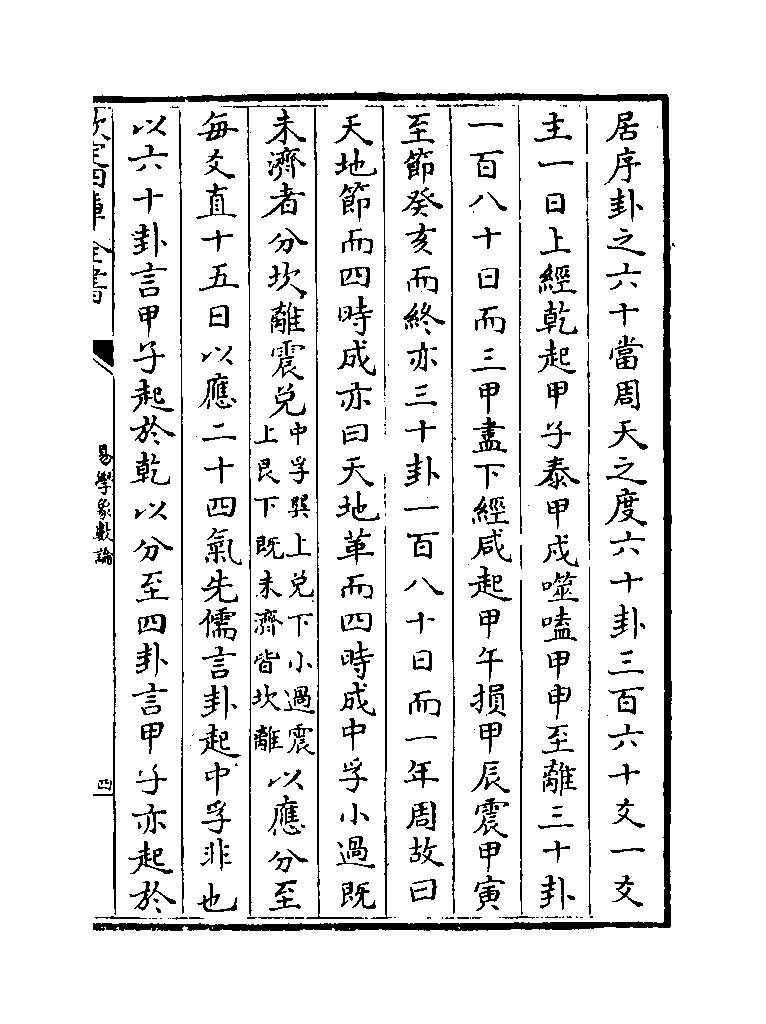 居序卦之六十當周天之度六十卦三百六十爻一爻
主一日上經乾起甲子泰甲戌噬嗑甲申至離三十卦
一百八十日而三甲盡下經咸起甲午損甲辰震甲寅
至節癸亥而終亦三十卦一百八十日而一年周故曰
天地節而四時成亦曰天地革而四時成中孚小過既
未濟者分坎離震兌中孚巽上兌下小過震上艮下既未濟皆坎離以應分至
每爻直十五日以應二十四氣先儒言卦起中孚非也
以六十卦言甲子起於乾以分至四卦言甲子亦起於
欽定四庫全書
易學象數論
四